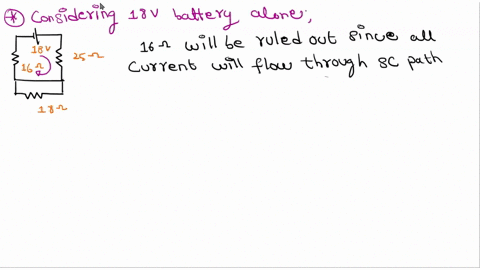 ⊛ Considering 18V battery alone;
18V
25Ω
16Ω
18Ω
16Ω will be ruled out since all
current will flow through SC path